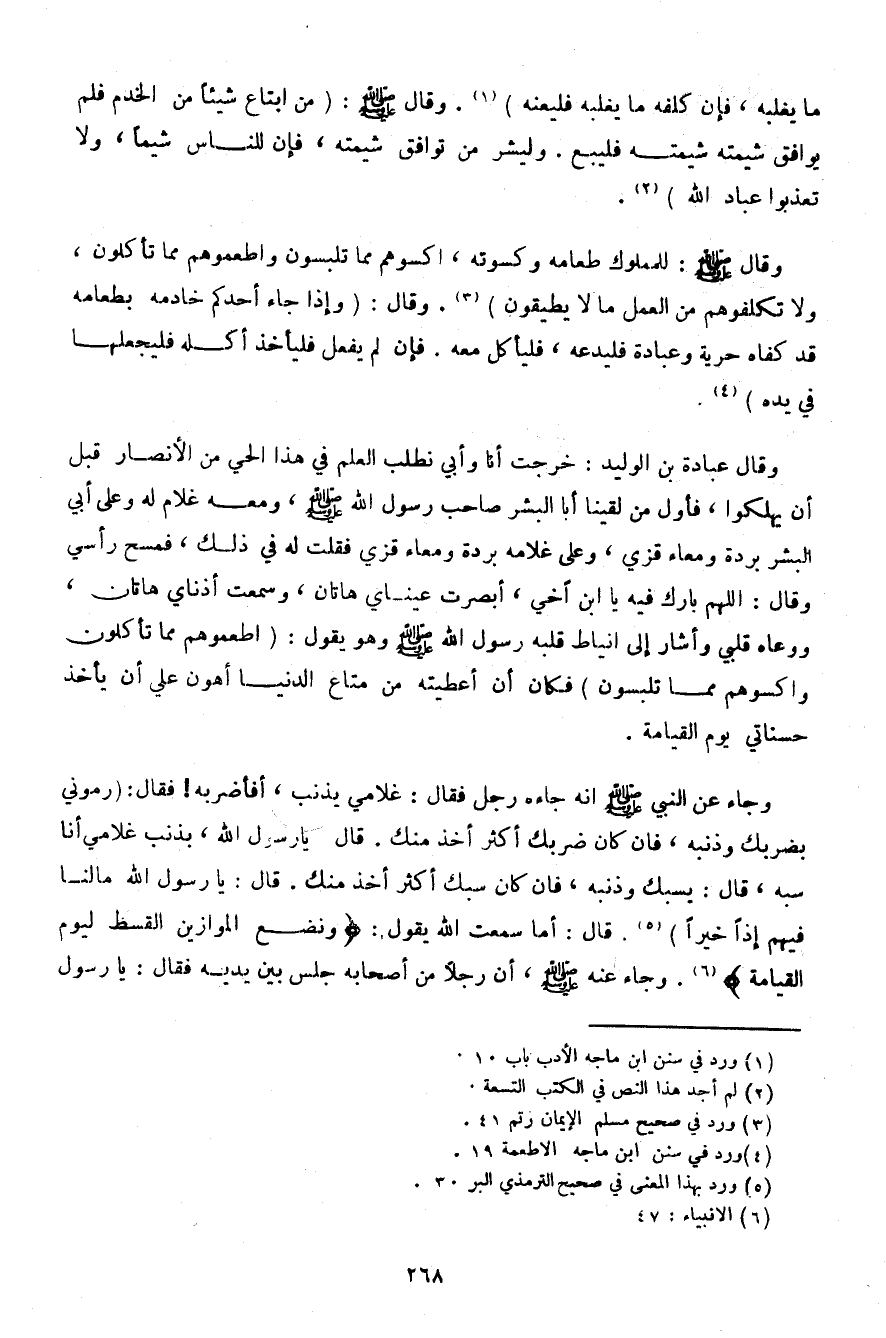 ما يغلبه ، فإن كلفه ما يغلبه فليعنه ) (١) . وقال ﷺ : ( من ابتاع شيئاً من الخدم فلم
يوافق شيمته شيمتـــه فليبع . وليشر من توافق شيمته ، فإن للنـــاس شيماً ، ولا
تعذبوا عباد الله ) (٢) .
وقال ﷺ : للمملوك طعامه وكسوته ، اكسوهم مما تلبسون واطعموهم مما تأكلون ،
ولا تكلفوهم من العمل ما لا يطيقون ) (٣) . وقال : ( وإذا جاء أحدكم خادمه بطعامه
قد كفاه حرية وعبادة فليدعه ، فليأكل معه . فإن لم يفعل فليأخذ أكـــله فليجعلهـــا
في يده ) (٤) .
وقال عبادة بن الوليد : خرجت أنا وأبي نطلب العلم في هذا الحي من الأنصـار قبل
أن يهلكوا ، فأول من لقينا أبا البشر صاحب رسول الله ﷺ ، ومعـــه غلام له وعلى أبي
البشر بردة ومعاء قزي ، وعلى غلامه بردة ومعاء قزي فقلت له في ذلـــك ، فمسح رأسي
وقال : اللهم بارك فيه يا ابن أخي ، أبصرت عينـاي هاتان ، وسمعت أذناي هاتان ،
ووعاه قلبي وأشار إلى انياط قلبه رسول الله ﷺ وهو يقول : ( اطعموهم مما تأكلون
واكسوهم ممـــا تلبسون ) فكان أن أعطيته من متاع الدنيـــا أهون علي أن يأخذ
حسناتي يوم القيامة .
وجاء عن النبي ﷺ انه جاءه رجل فقال : غلامي يذنب ، أفأضربه ! فقال : ( رموني
بضربك وذنبه ، فان كان ضربك أكثر أخذ منك . قال يارسول الله ، بذنب غلامي أنا
سبه ، قال : يسبك وذنبه ، فان كان سبك أكثر أخذ منك . قال : يا رسول الله مالنـــا
فيهم إذاً خيراً ) (٥) . قال : أما سمعت الله يقول : ﴿ ونضـــع الموازين القسط ليوم
القيامة ﴾ (٦) . وجاء عنه ﷺ ، أن رجلاً من أصحابه جلس بين يديـه فقال : يا رسول
(١) ورد في سنن ابن ماجه الأدب باب ١٠ .
(٢) لم أجد هذا النص في الكتب التسعة .
(٣) ورد في صحيح مسلم الإيمان رتم ٤١ .
(٤) ورد في سنن ابن ماجه الاطعمة ١٩ .
(٥) ورد بهذا المعنى في صحيح الترمذي البر ٣٠ .
(٦) الانبياء : ٤٧
٢٦٨